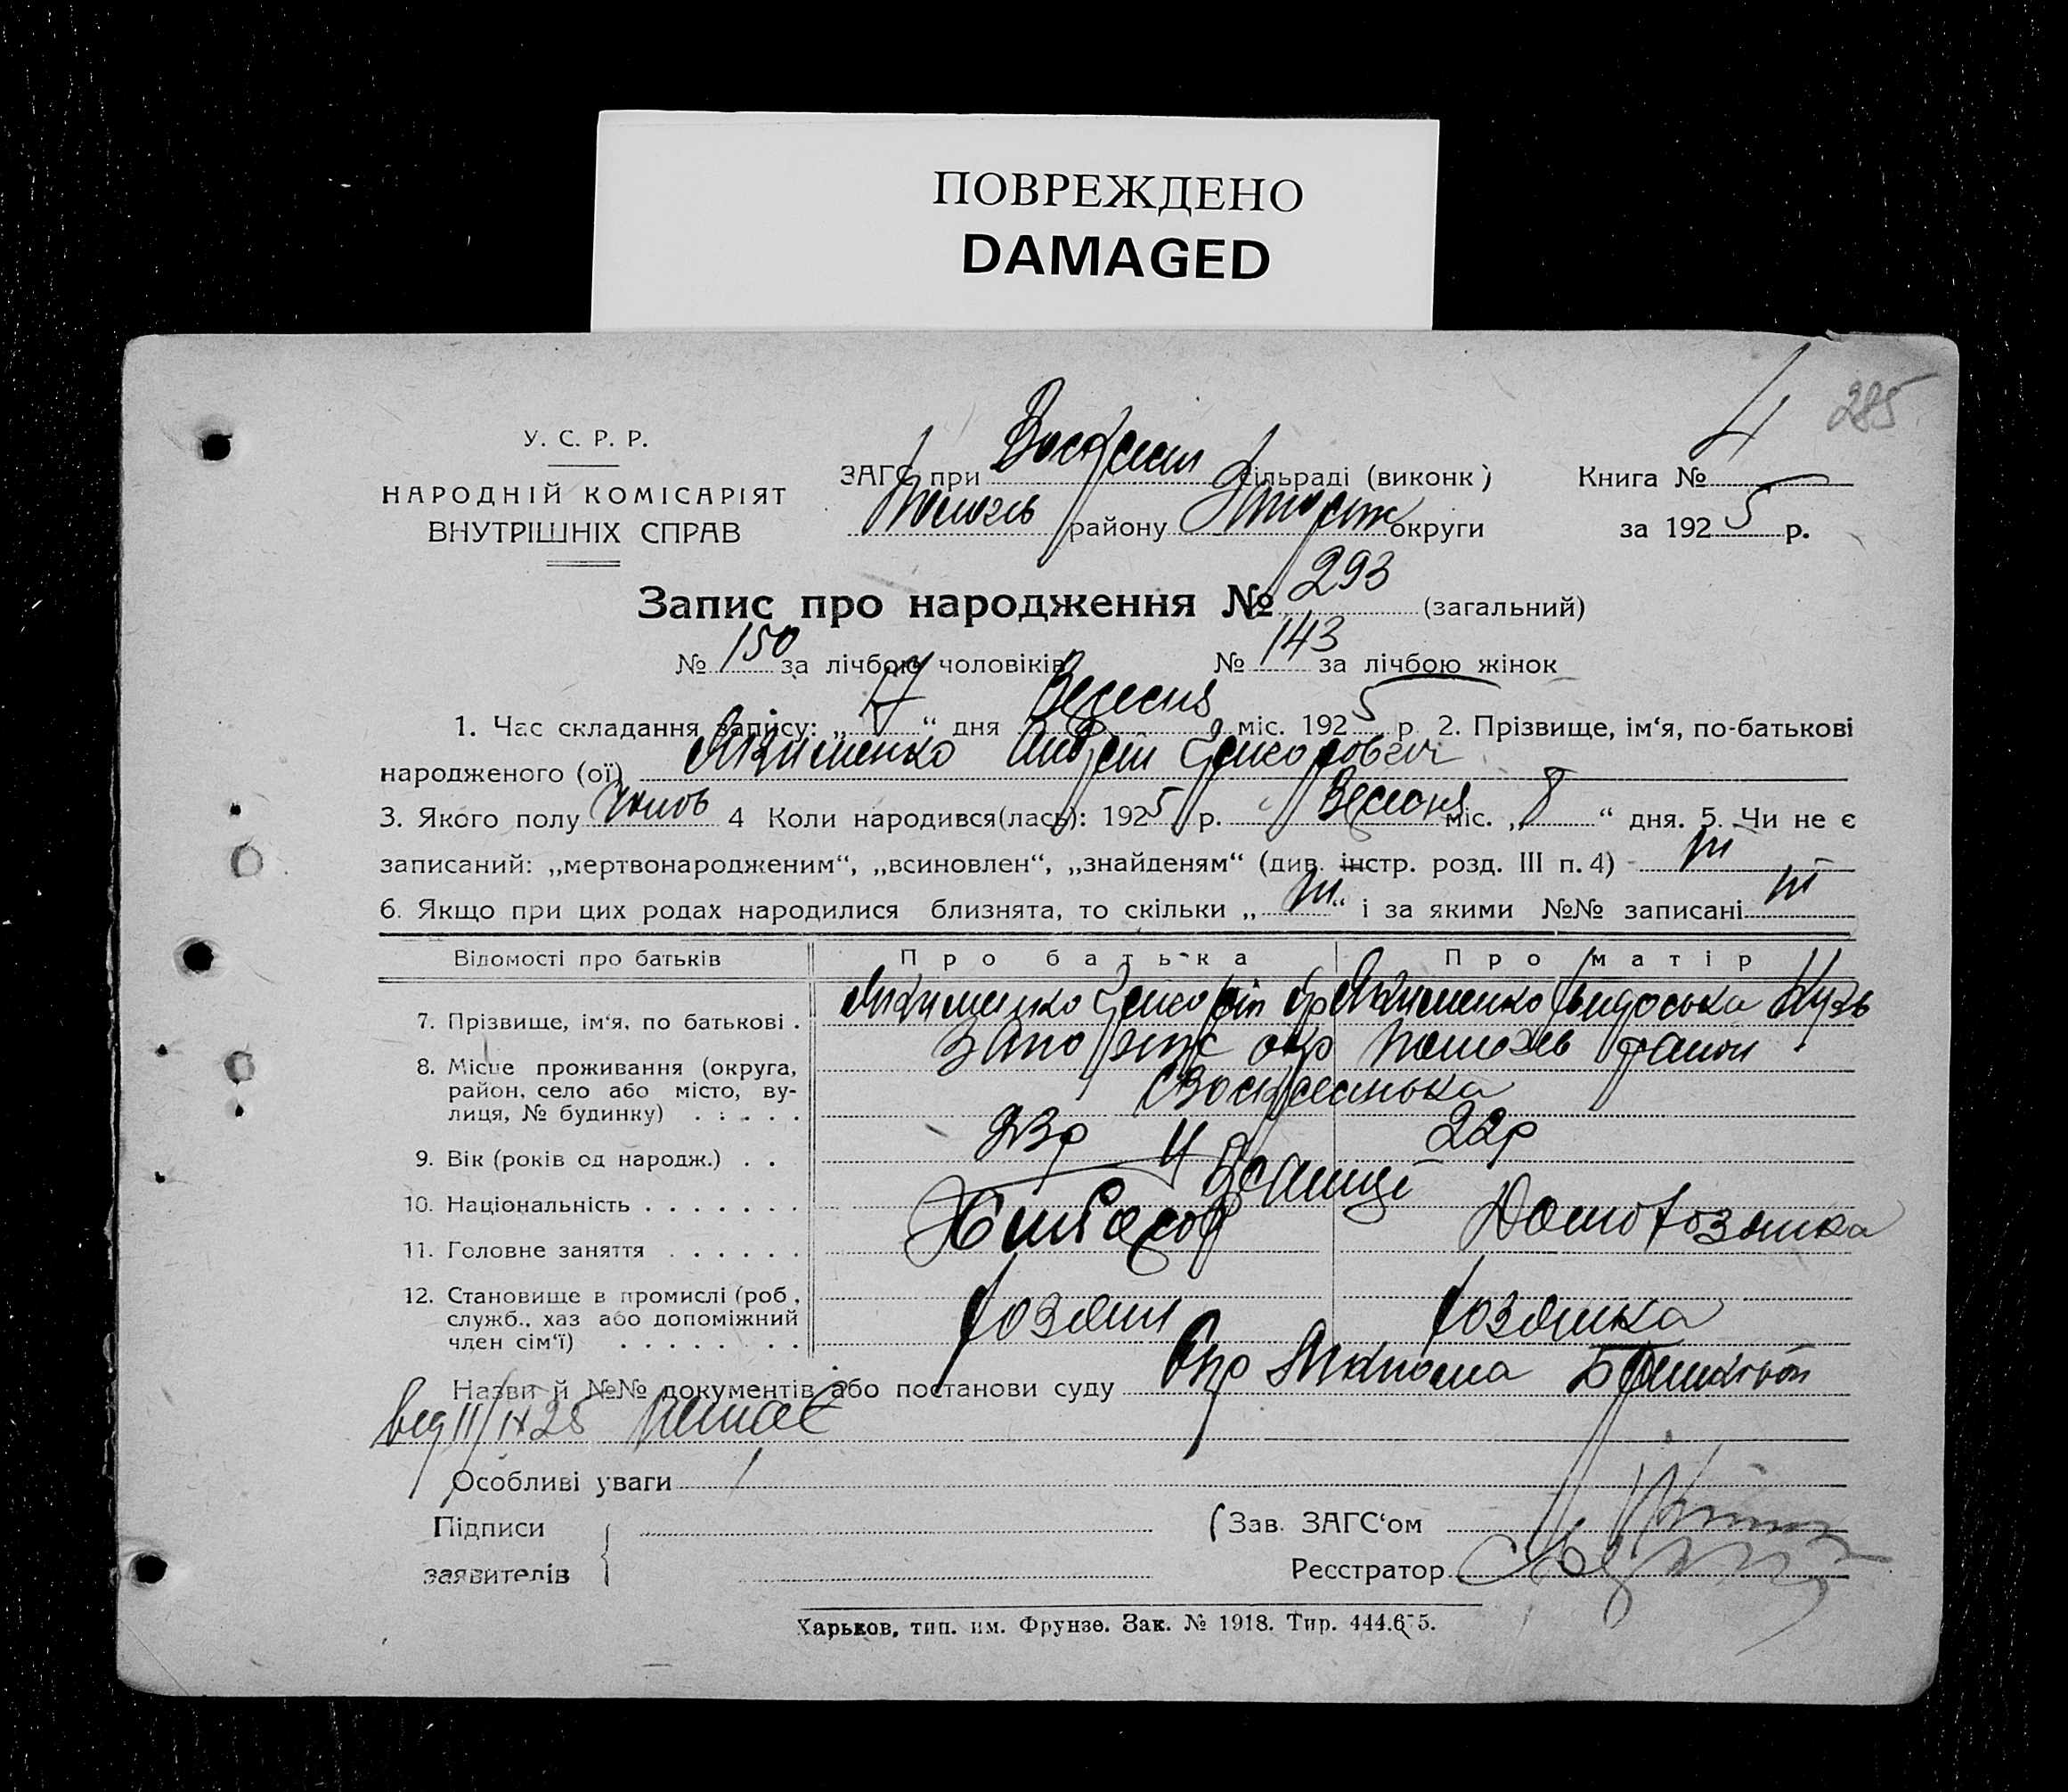 ПОВРЕЖДЕНО
DAMAGED
285
У. С. Р. Р.
НАРОДНІЙ КОМІСАРІЯТ
ВНУТРІШНІХ СПРАВ
ЗАГС при Воскресен сільраді (виконк)
Пологів району Запоріж округи
Книга № 4
за 1925 р.
Запис про народження № 293 (загальний)
№ 150 за лічбою чоловіків № 143 за лічбою жінок
1. Час складання запису: „17“ дня Вересня міс. 1925 р 2. Прізвище, ім‘я, по-батькові
народженого (ої) Якименко Андрей Григорович
3. Якого полу чолов 4 Коли народився(лась): 1925 р. Вересня міс. „8“ дня. 5. Чи не є
записаний: „мертвонародженим“, „всиновлен“, „знайденям“ (див. інстр. розд. III п. 4) ні
6. Якщо при цих родах народилися близнята, то скільки „ні“ і за якими №№ записані ні
Відомості про батьків Про батька Про матір
7. Прізвище, ім‘я, по батькові . Якименко Григорій Якименко Кузь
8. Місце проживання (округа, Запоріж окр Пологів район
район, село або місто, ву- Воскресенька
лиця, № будинку) . . . . .
9. Вік (років од народж.) . . 23р 22р
10. Національність . . . . . . . Українці
11. Головне заняття . . . . . . Хлібороб Домохозяйка
12. Становище в промислі (роб,
служб., хаз або допоміжний хозяин хозяйка
член сім‘ї) . . . . . . .
Назви й №№ документів або постанови суду
від 11/IX 25 Немає
Особливі уваги
Підписи
заявителів
Зав. ЗАГС‘ом
Ресстратор
Харьков, тип. им. Фрунзе. Зак. № 1918. Тир. 444.675.